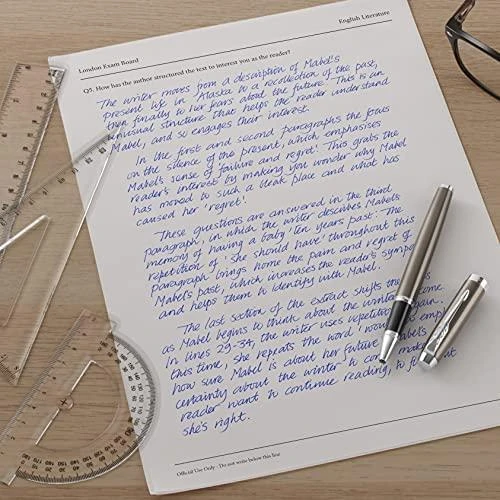 London Exam Board
English Literature
Q5. How has the author structured the text to interest you as the reader?
The writer moves from a description of Mabel's
present life in Alaska to a recollection of the past,
then finally to her fears about the future. This is an
unusual structure that helps the reader understand
Mabel, and so engages their interest.
In the first and second paragraphs the focus
on the silence of the present, which emphasises
Mabel's sense of failure and regret! This grabs the
reader's interest by making you wonder why Mabel
has moved to such a bleak place and what has
caused her 'regret'.
These questions are answered in the third
paragraph, in which the writer describes Mabel's
memory of having a baby 'ten years past'. The
repetition of 'She should have' throughout this
paragraph brings home the pain and regret of
Mabel's past, which increases the reader's
and helps them to identify with Mabel.
The last section of the extract shifts the
as Mabel begins to think about the winter to come.
In lines 29-34, the writer uses repetition again.
this time, She repeats the word
how sure Mabel is about her future Mabel's
certainty about the winter to make
reader want to continue reading, to out
she's right.
Official Use Only - Do not write below this line